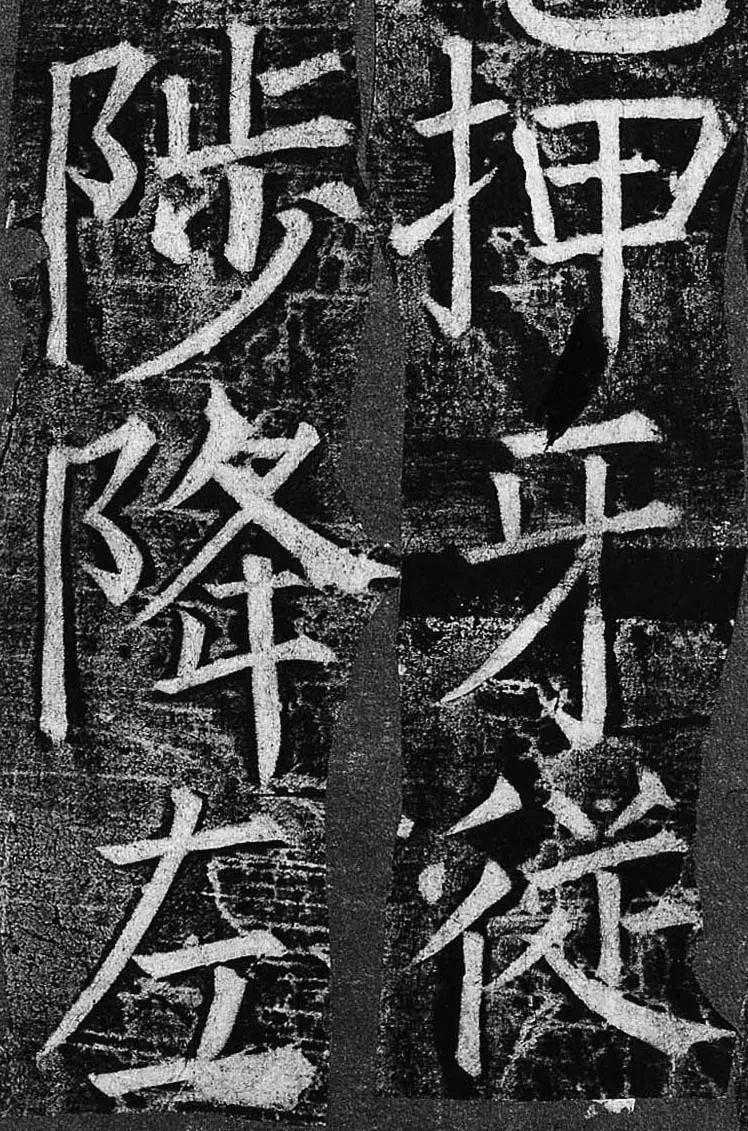 押牙従
陟降左